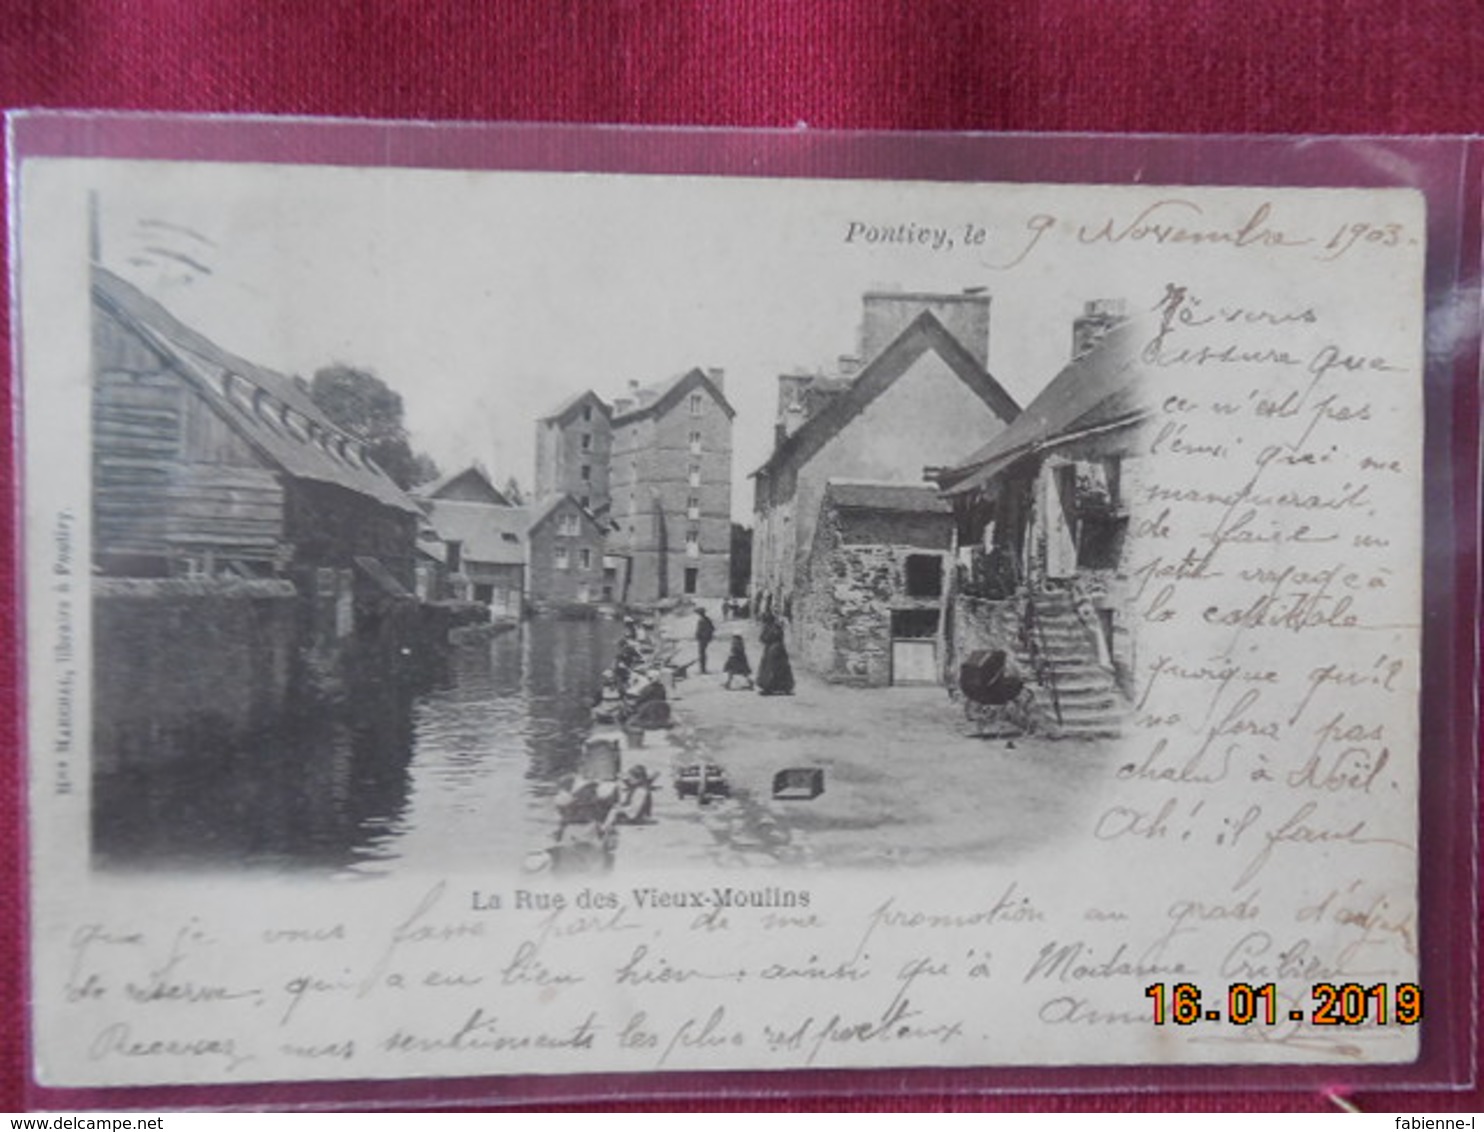 Pontivy, le 9 Novembre 1903.
Je vous
assure que
ce n'est pas
l'envi qui me
manquerait,
de faire un
petit voyage à
la capitale
quoique qu'il
ne fera pas
chaud à Noël.
Ah! il faut
La Rue des Vieux-Moulins
que je vous fasse part, de me promotion au grade d'adjt
de réserve, qui a eu lieu hier; ainsi qu'à Madame
Recevez mes sentiments les plus respectueux.
Mme MARCHAL, libraire à Pontivy.
16.01.2019
fabienne-l